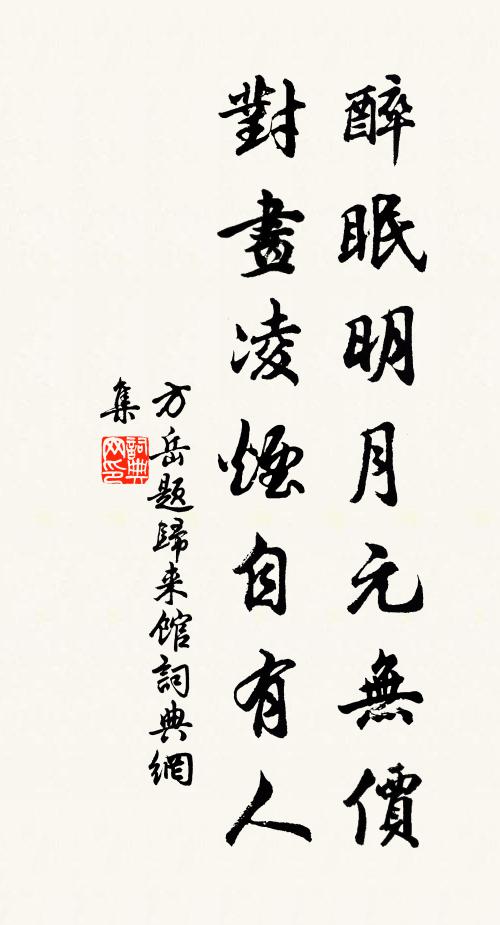 醉眠明月元無價
對畫凌煙自有人
方岳題歸来館詞典網
集
詞典網印